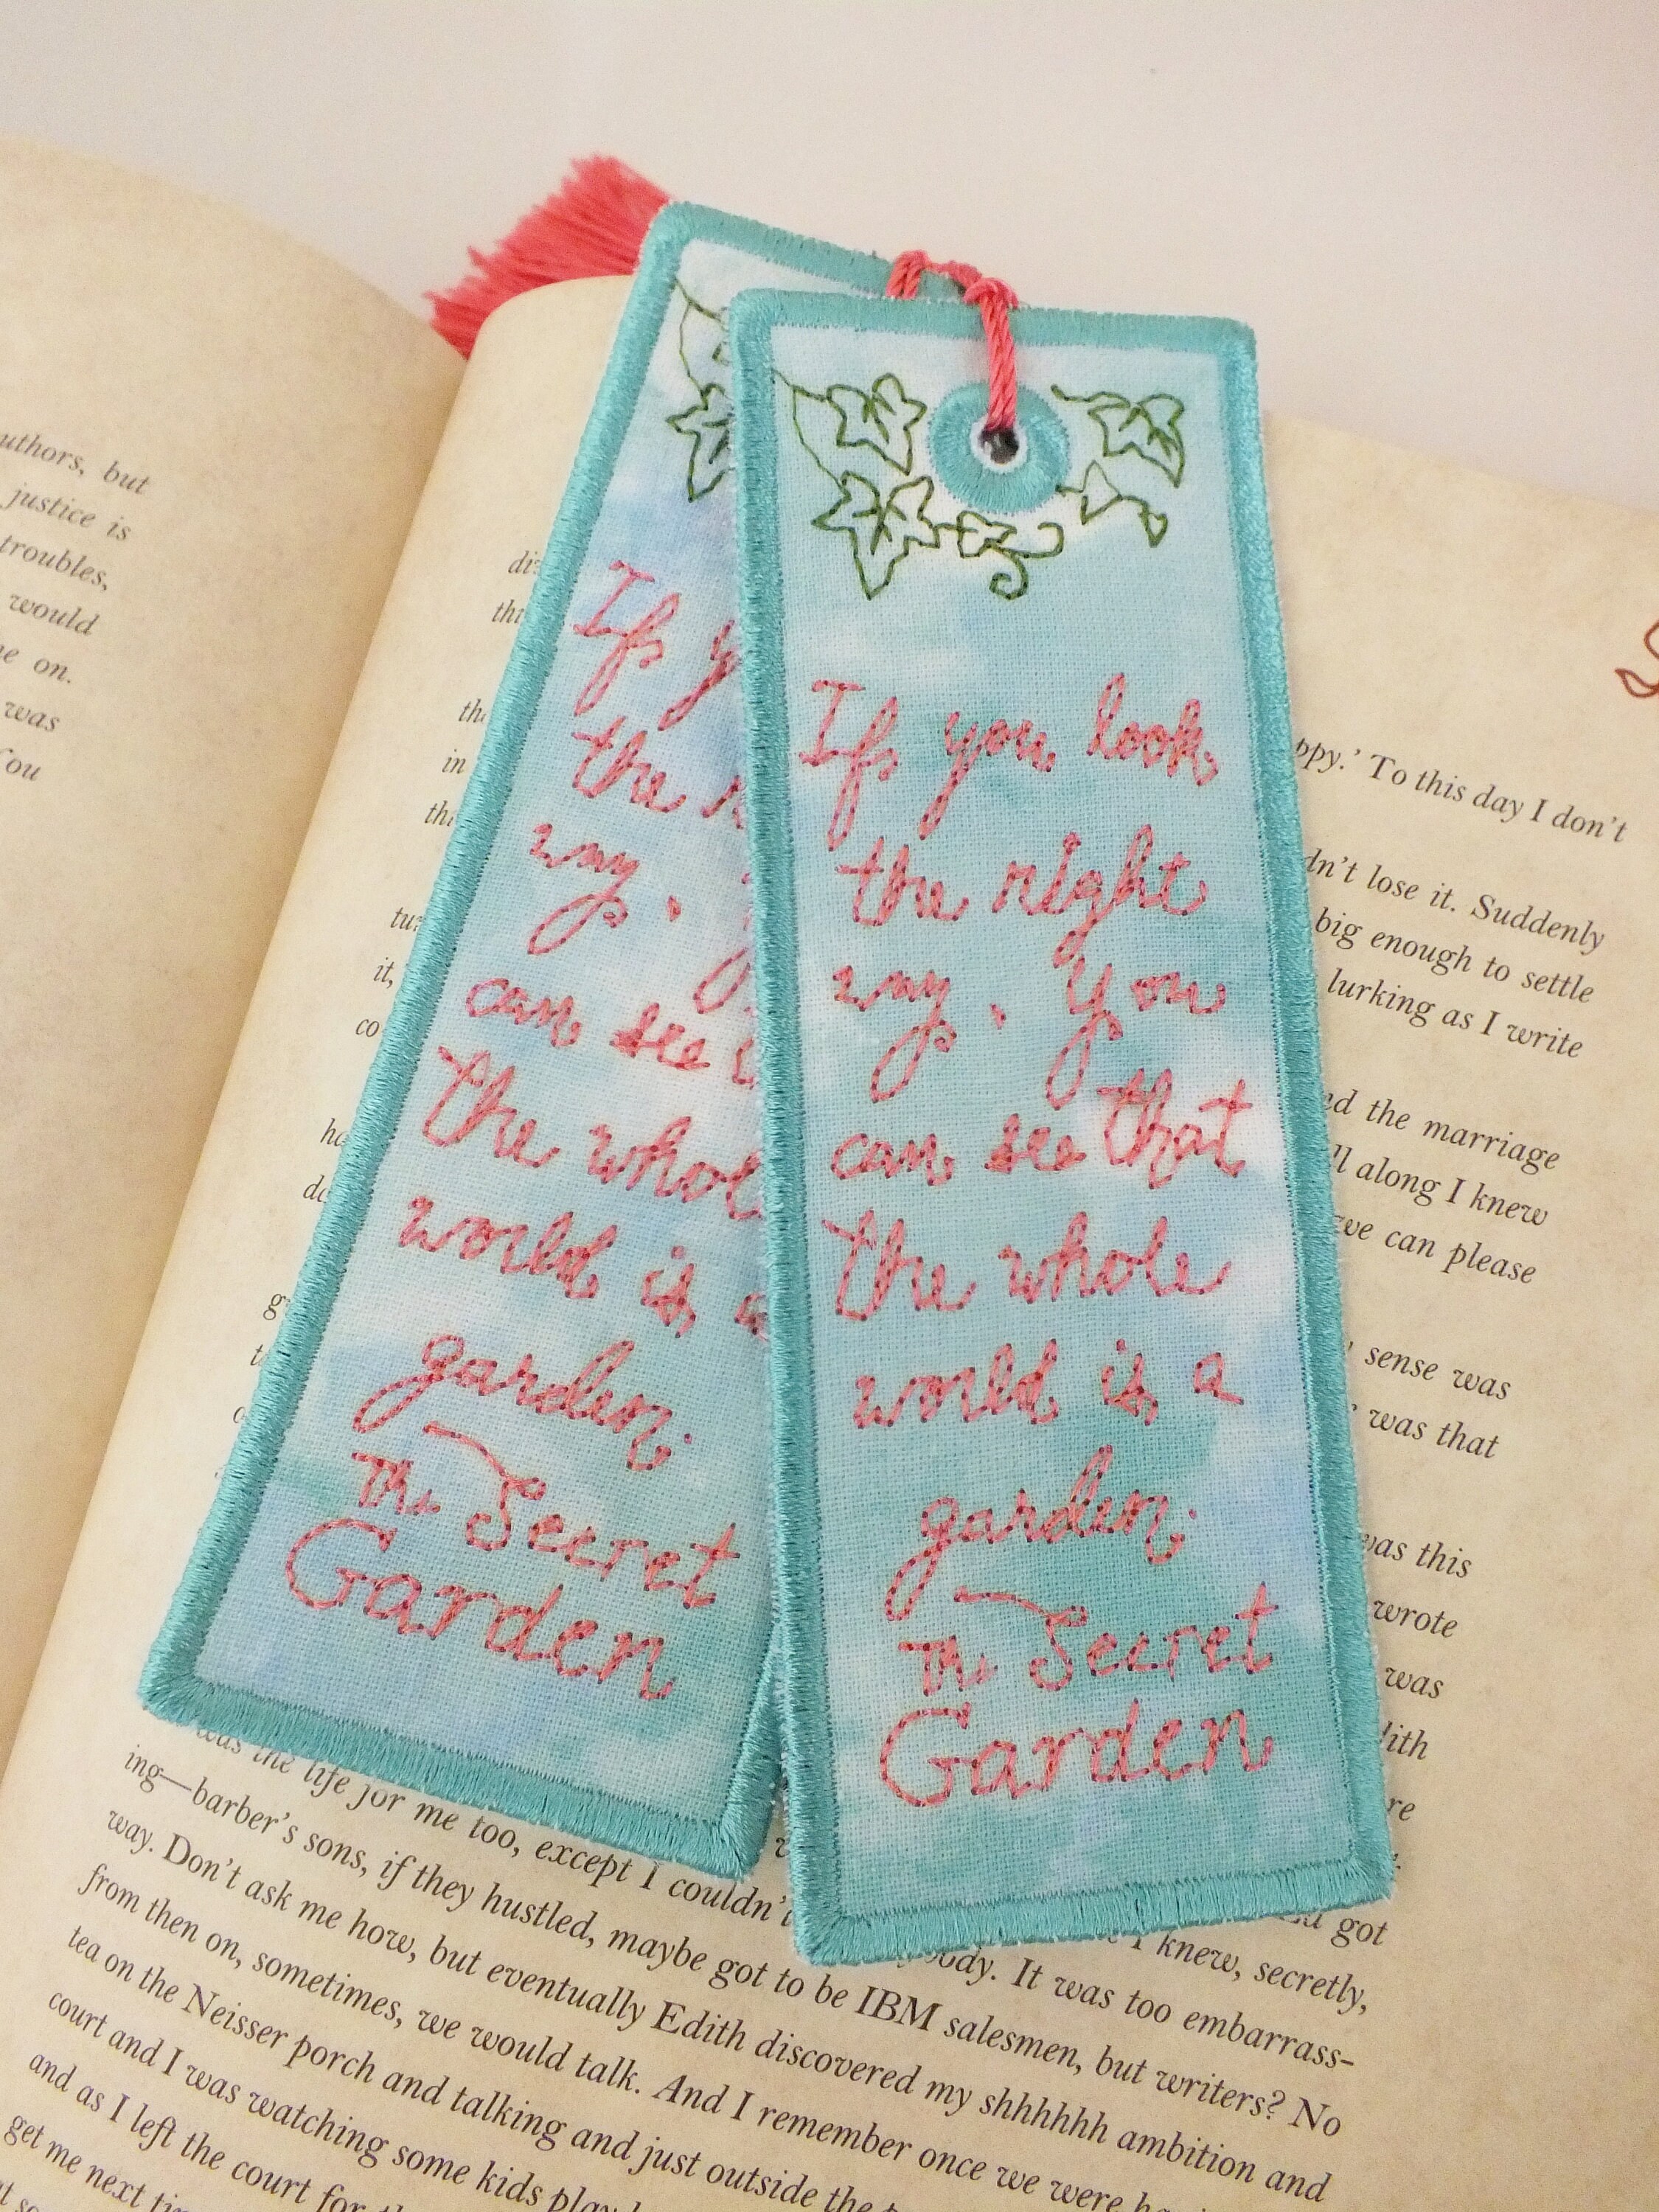 uthors, but
justice is
troubles,
would
e on.
was
ou
If y
the
way,
can see
the whol
world is a
garden.
The Secret
Garden
If you look
the right
way, you
can see that
the whole
world is a
garden.
The Secret
Garden
thi
the
in
thi
it,
co
ppy.' To this day I don't
dn't lose it. Suddenly
big enough to settle
lurking as I write
d the marriage
ll along I knew
we can please
sense was
was that
was this
wrote
was
dith
re
was the life for me too, except I couldn't
got
ing—barber's sons, if they hustled, maybe got to be IBM salesmen, but writers? No
body. It was too embarrass-
I knew, secretly,
way. Don't ask me how, but eventually Edith discovered my shhhhhh ambition and
from then on, sometimes, we would talk. And I remember once we were
tea on the Neisser porch and talking and just outside the
court and I was watching some kids play
and as I left the court for
get me next